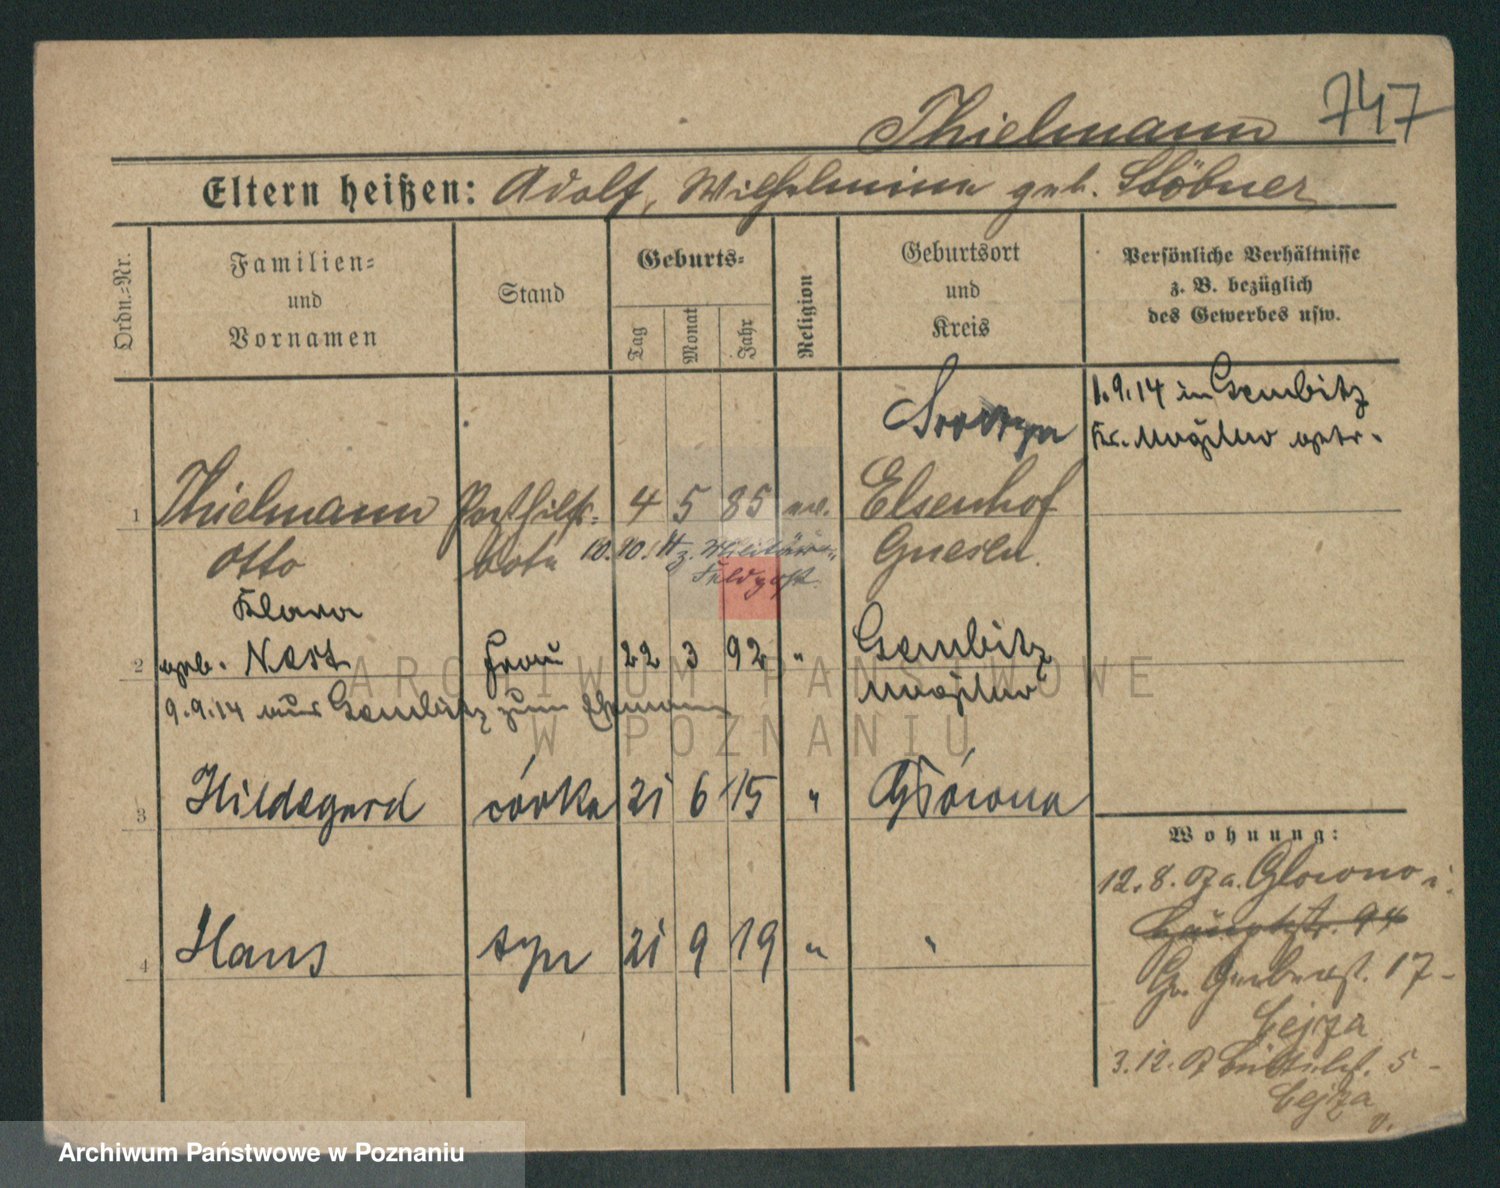 747
Thielmann
Eltern heißen: Adolf, Wilhelmine geb. Stöbner
Ordn.-Nr.
Familien- und Vornamen
Stand
Geburts-
Tag
Monat
Jahr
Religion
Geburtsort und Kreis
Persönliche Verhältnisse
z. B. bezüglich
des Gewerbes usw.
1.9.14 in Gembitz
Kr. Mogilno getr.
1 Thielmann Posthilfs- 4 5 85 ev. Elsenhof
Otto bote 10.10.14 z. Militär- Gnesen.
Feldpost.
Klara
2 geb. Nast Frau 22 3 92 " Gembitz
Mogilno
9.9.14 aus Gembitz zum Ehemann
3 Hildegard córka 21 6 15 " Główna
4 Hans syn 21 9 19 " "
Wohnung:
12.8. Glowno
Hauptstr. 94
Gr. Gerberst. 17-
Cejza
3.12. 5-
Cejza
ARCHIWUM PAŃSTWOWE
W POZNANIU
Archiwum Państwowe w Poznaniu